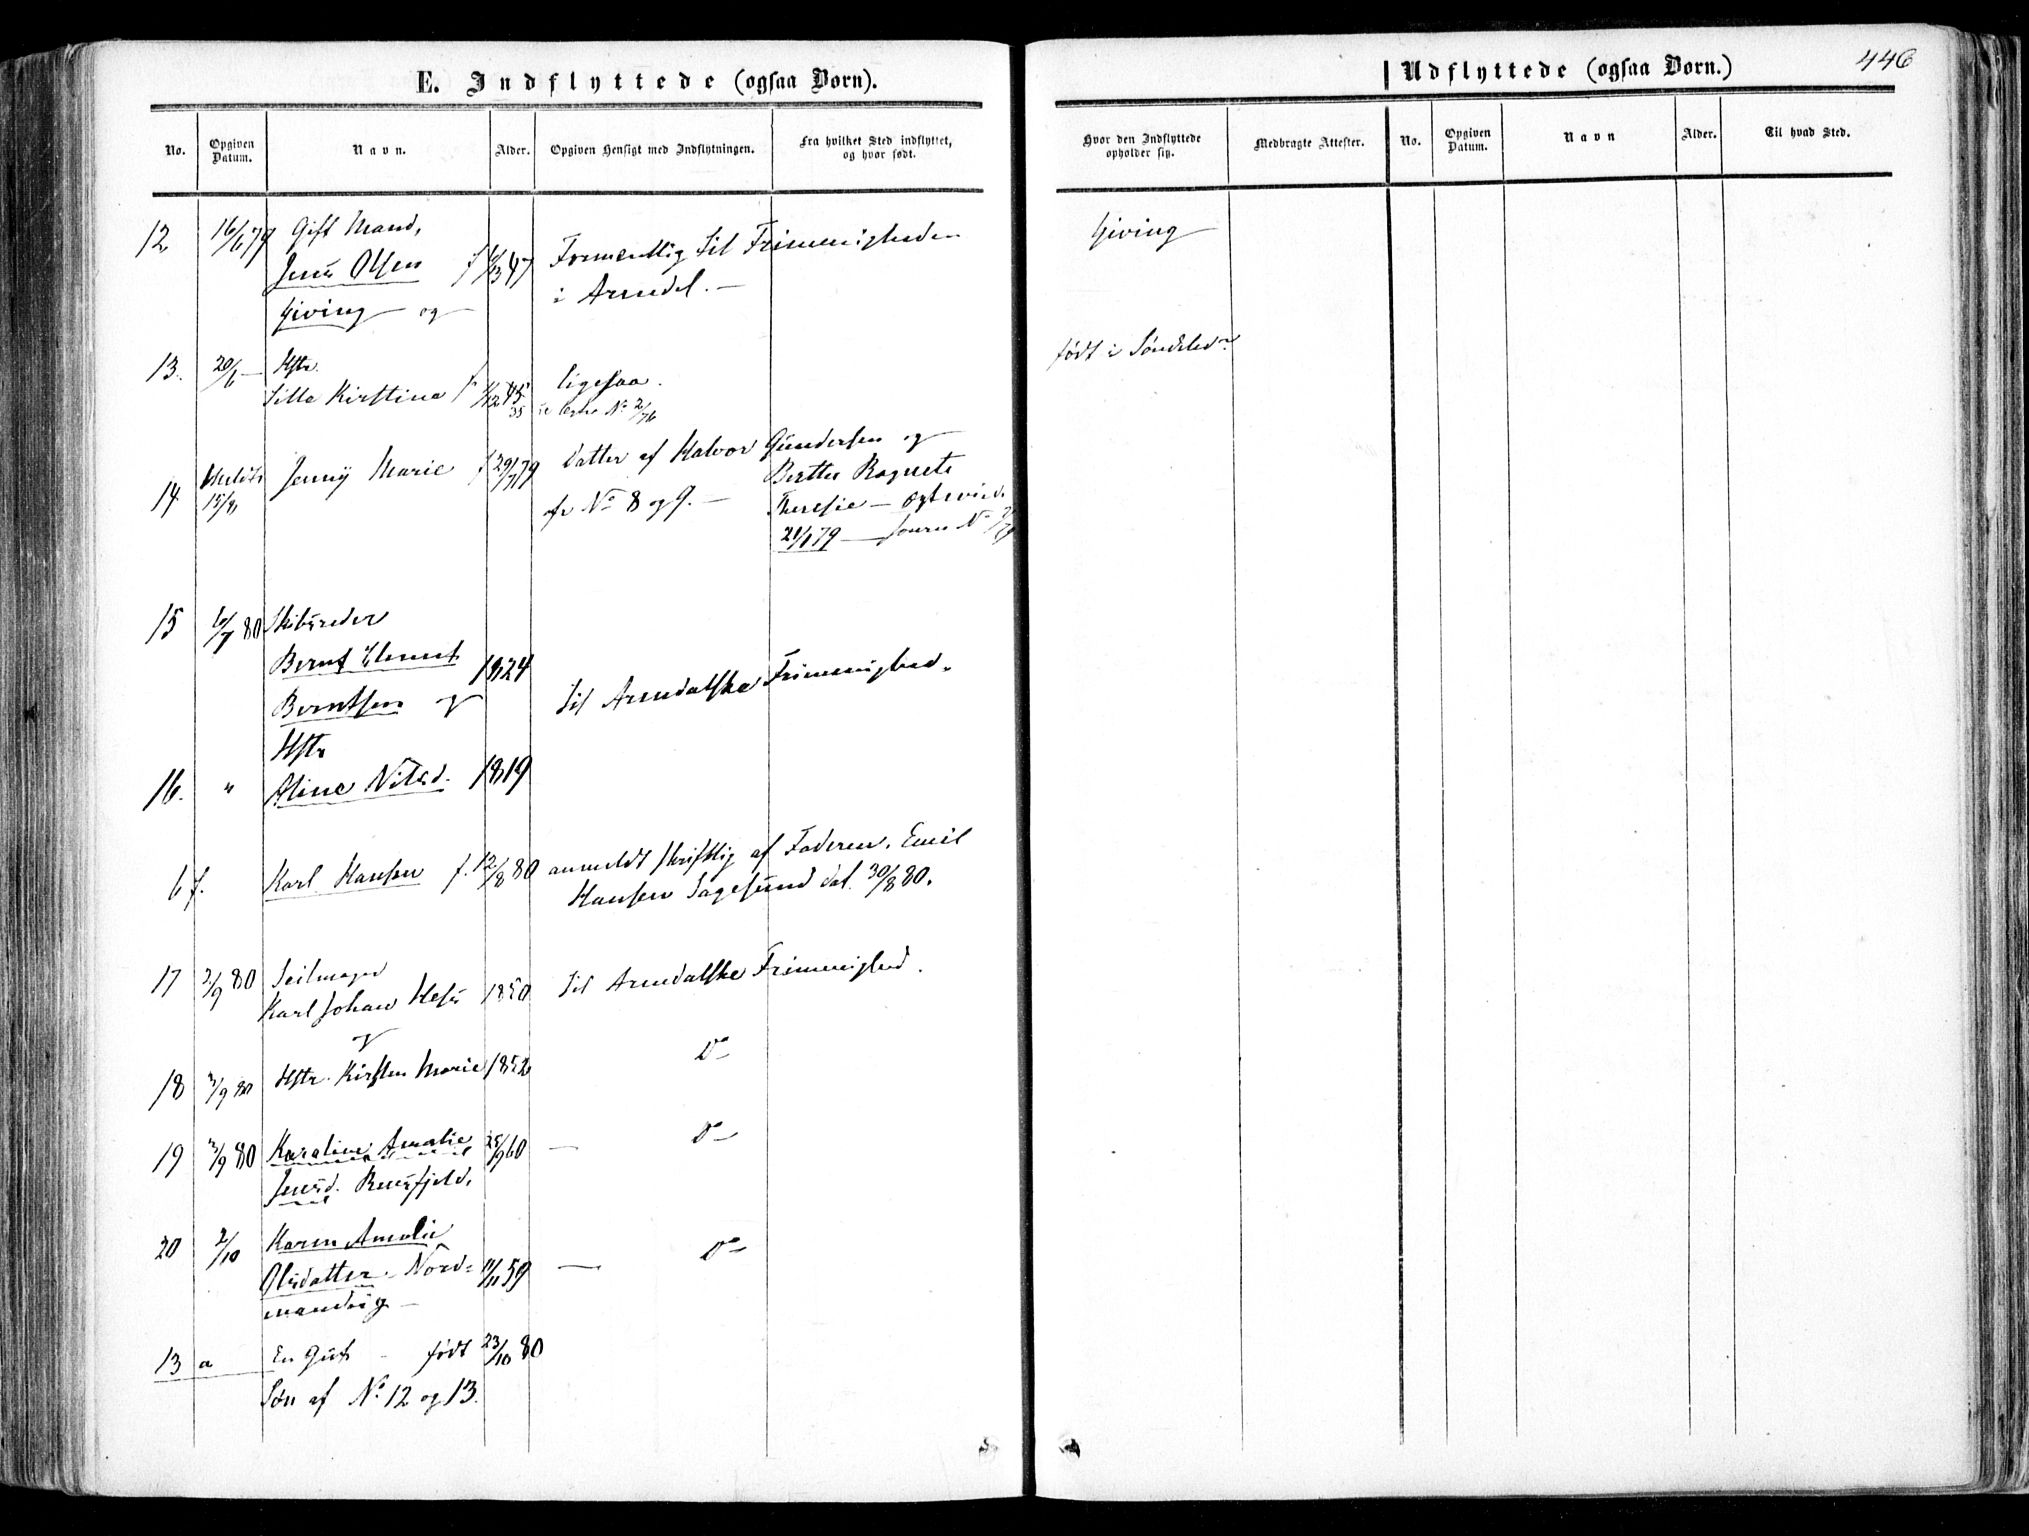 E. Indflyttede (ogsaa Børn).
No.
Opgiven Datum.
Navn.
Alder.
Opgiven Hensigt med Indflytningen.
Fra hvilket Sted indflyttet, og hvor født.
12 16/6 79 Gift Mand,
Jens Olsen f 47 Formentlig til Frimenigheden
Giving og i Arendal. —
13. 20/6 — Hstr.
Kirstine f 45 ligesaa.
14. 15/8 Jenny Marie f 29/7 79 Datter af Halvor Gundersen og
Berthe Ragnete
fr No 8 og 9. — Theresie —
21/1 79 —
15 6/7 80 Skibsreder
Bernt 1824
Berntsen og til Arendalske Frimenighed.
Hstr
16. " Aline Nilsd. 1819
6 f. Karl Hansen f. 12/8 80 anmeldt skriftlig af Faderen. Emil
Hansen Sagesund dat. 30/8 80.
17 2/9 80 Seilmager
Karl Johan 1850 til Arendalske Frimenighed.
og
18 3/9 80 Hstr. Kirsten Marie 1852 Do —
19 3/9 80 Karoline Amalie 25/9 60 — Do —
Jensd.
20 2/10 Karen Amalie
Olsdatter. Nord= 11/11 59 — Do —
13 a En Gut — født 23/10 80
Søn af No 12 og 13.
Udflyttede (ogsaa Børn.)
446
Hvor den Indflyttede opholder sig.
Medbragte Attester.
No.
Opgiven Datum.
Navn
Alder.
Til hvad Sted.
Giving
født i